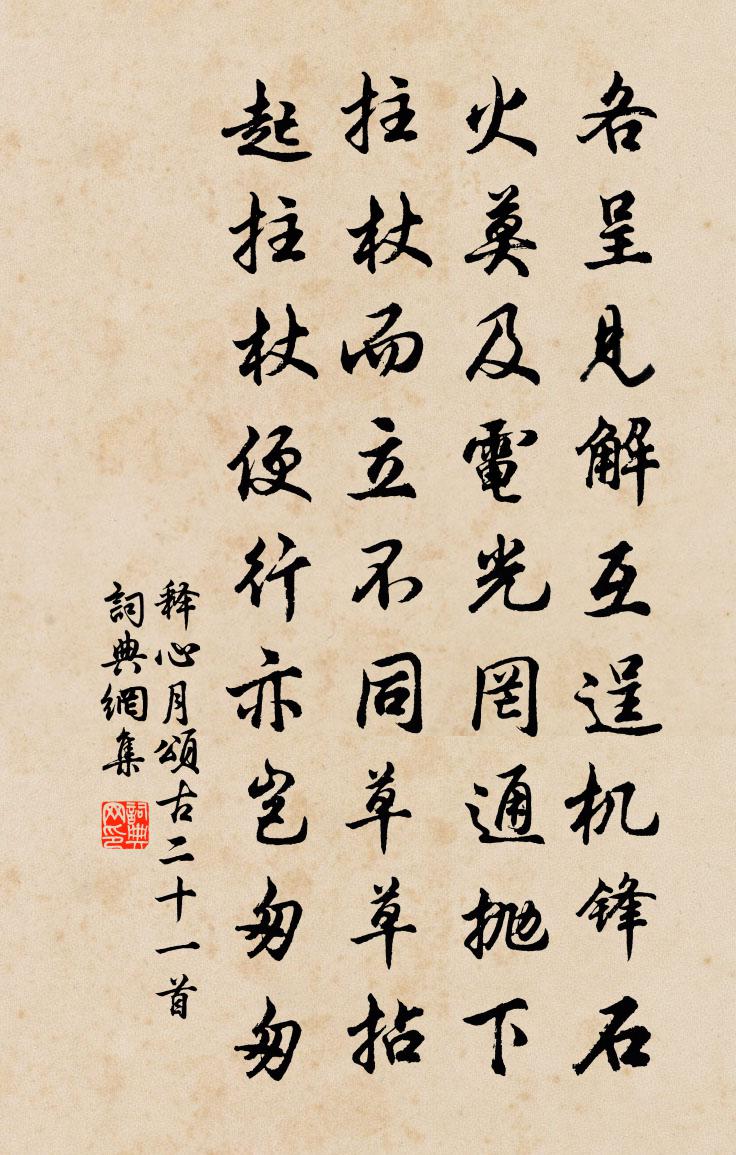 各呈見解互逞机锋石
火莫及電光罔通抛下
拄杖而立不同草草拈
起拄杖便行亦岂匆匆
释心月頌古二十一首
詞典網集
詞典网印